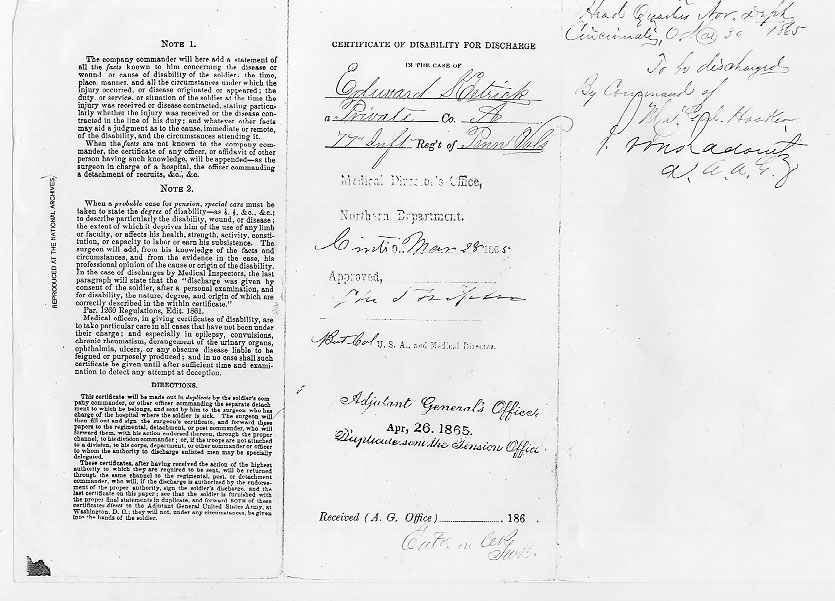 NOTE 1.
The company commander will here add a statement of
all the facts known to him concerning the disease or
wound, or cause of disability of the soldier; the time,
place, manner, and all the circumstances under which the
injury occurred, or disease originated or appeared; the
duty, or service, or situation of the soldier at the time the
injury was received or disease contracted, stating particu-
larly whether the injury was received or the disease con-
tracted in the line of his duty; and whatever other facts
may aid a judgment as to the cause, immediate or remote,
of the disability, and the circumstances attending it.
When the facts are not known to the company com-
mander, the certificate of any officer, or affidavit of other
person having such knowledge, will be appended—as the
surgeon in charge of a hospital, the officer commanding
a detachment of recruits, &c., &c.
NOTE 2.
When a probable case for pension, special care must be
taken to state the degree of disability—as &c., &c.;
to describe particularly the disability, wound, or disease;
the extent of which it deprives him of the use of any limb
or faculty, or affects his health, strength, activity, consti-
tution, or capacity to labor or earn his subsistence. The
surgeon will add, from his knowledge of the facts and
circumstances, and from the evidence in the case, his
professional opinion of the cause or origin of the disability.
In the case of discharges by Medical Inspectors, the last
paragraph will state that the "discharge was given by
consent of the soldier, after a personal examination, and
for disability, the nature, degree, and origin of which are
correctly described in the within certificate."
Par. 1260 Regulations, Edit. 1861.
Medical officers, in giving certificates of disability, are
to take particular care in all cases that have not been under
their charge; and especially in epilepsy, convulsions,
chronic rheumatism, derangement of the urinary organs,
ophthalmia, ulcers, or any obscure disease liable to be
feigned or purposely produced; and in no case shall such
certificate be given until after sufficient time and exami-
nation to detect any attempt at deception.
DIRECTIONS.
This certificate will be made out in duplicate by the soldier's com-
pany commander, or other officer commanding the separate detach-
ment to which he belongs, and sent by him to the surgeon who has
charge of the hospital where the soldier is sick. The surgeon will
then fill out and sign the surgeon's certificate, and forward these
papers to the regimental, detachment, or post commander, who will
forward them, with his action endorsed thereon, through the proper
channel, to his division commander; or, if the troops are not attached
to a division, to his corps, department, or other commander or officer
to whom the authority to discharge enlisted men may be specially
delegated.
These certificates, after having received the action of the highest
authority to which they are required to be sent, will be returned
through the same channel to the regimental, post, or detachment
commander, who will, if the discharge is authorized by the endorse-
ment of the proper authority, sign the soldier's discharge, and the
last certificate on this paper; see that the soldier is furnished with
the proper final statements in duplicate, and forward BOTH of these
certificates direct to the Adjutant General United States Army, at
Washington, D. C.; they will not, under any circumstances, be given
into the hands of the soldier.
REPRODUCED AT THE NATIONAL ARCHIVES
CERTIFICATE OF DISABILITY FOR DISCHARGE
IN THE CASE OF
Edward
a Private Co. A
77" Inft Reg't of Penn Vols
Medical Director's Office,
Northern Department.
Cinti O. Mar 28 1865
Approved,
Bvt Col U. S. A., and Medical Director.
Adjutant General's Office,
Apr, 26. 1865.
Duplicate sent the Pension Office.
Received (A. G. Office) 186 .
Head Quarters Nor. Dept.
Cincinnati, O. Mar 30 1865
To be discharged
By Command of
Maj. Genl. Hooker
A. A. G.